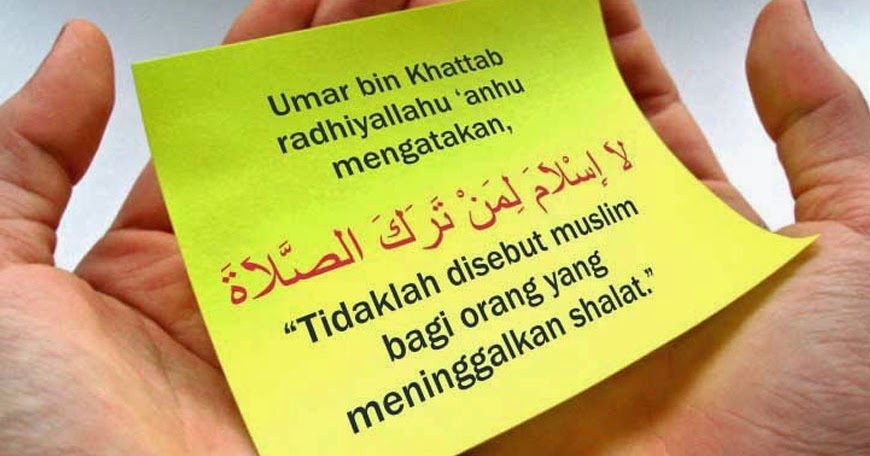 Umar bin Khattab
radhiyallahu ‘anhu
mengatakan,
لاَ إِسْلاَمَ لِمَنْ تَرَكَ الصَّلاَةَ
“Tidaklah disebut muslim
bagi orang yang
meninggalkan shalat.”